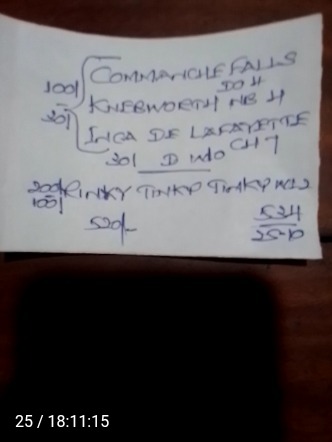 100/ COMMANCHE FALLS
DO 4
30/ KNEBWORTH NB 4
INCA DE LAFAYETTE
30/ D W/O CH 7
200/ RINKY TINKY TINKY W12
100/
520/-
534
25-10
25 / 18:11:15